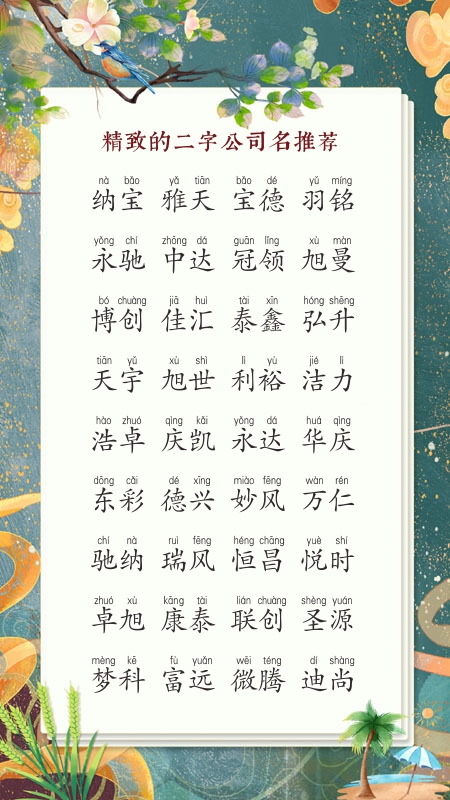 精致的二字公司名推荐
nà bǎo yǎ tiān bǎo dé yǔ míng
纳宝 雅天 宝德 羽铭
yǒng chí zhōng dá guān lǐng xù màn
永驰 中达 冠领 旭曼
bó chuàng jiā huì tài xīn hóng shēng
博创 佳汇 泰鑫 弘升
tiān yǔ xù shì lì yù jié lì
天宇 旭世 利裕 洁力
hào zhuó qìng kǎi yǒng dá huá qìng
浩卓 庆凯 永达 华庆
dōng cǎi dé xīng miào fēng wàn rén
东彩 德兴 妙风 万仁
chí nà ruì fēng héng chāng yuè shí
驰纳 瑞风 恒昌 悦时
zhuó xù kāng tài lián chuàng shèng yuán
卓旭 康泰 联创 圣源
mèng kē fù yuǎn wēi téng dí shàng
梦科 富远 微腾 迪尚